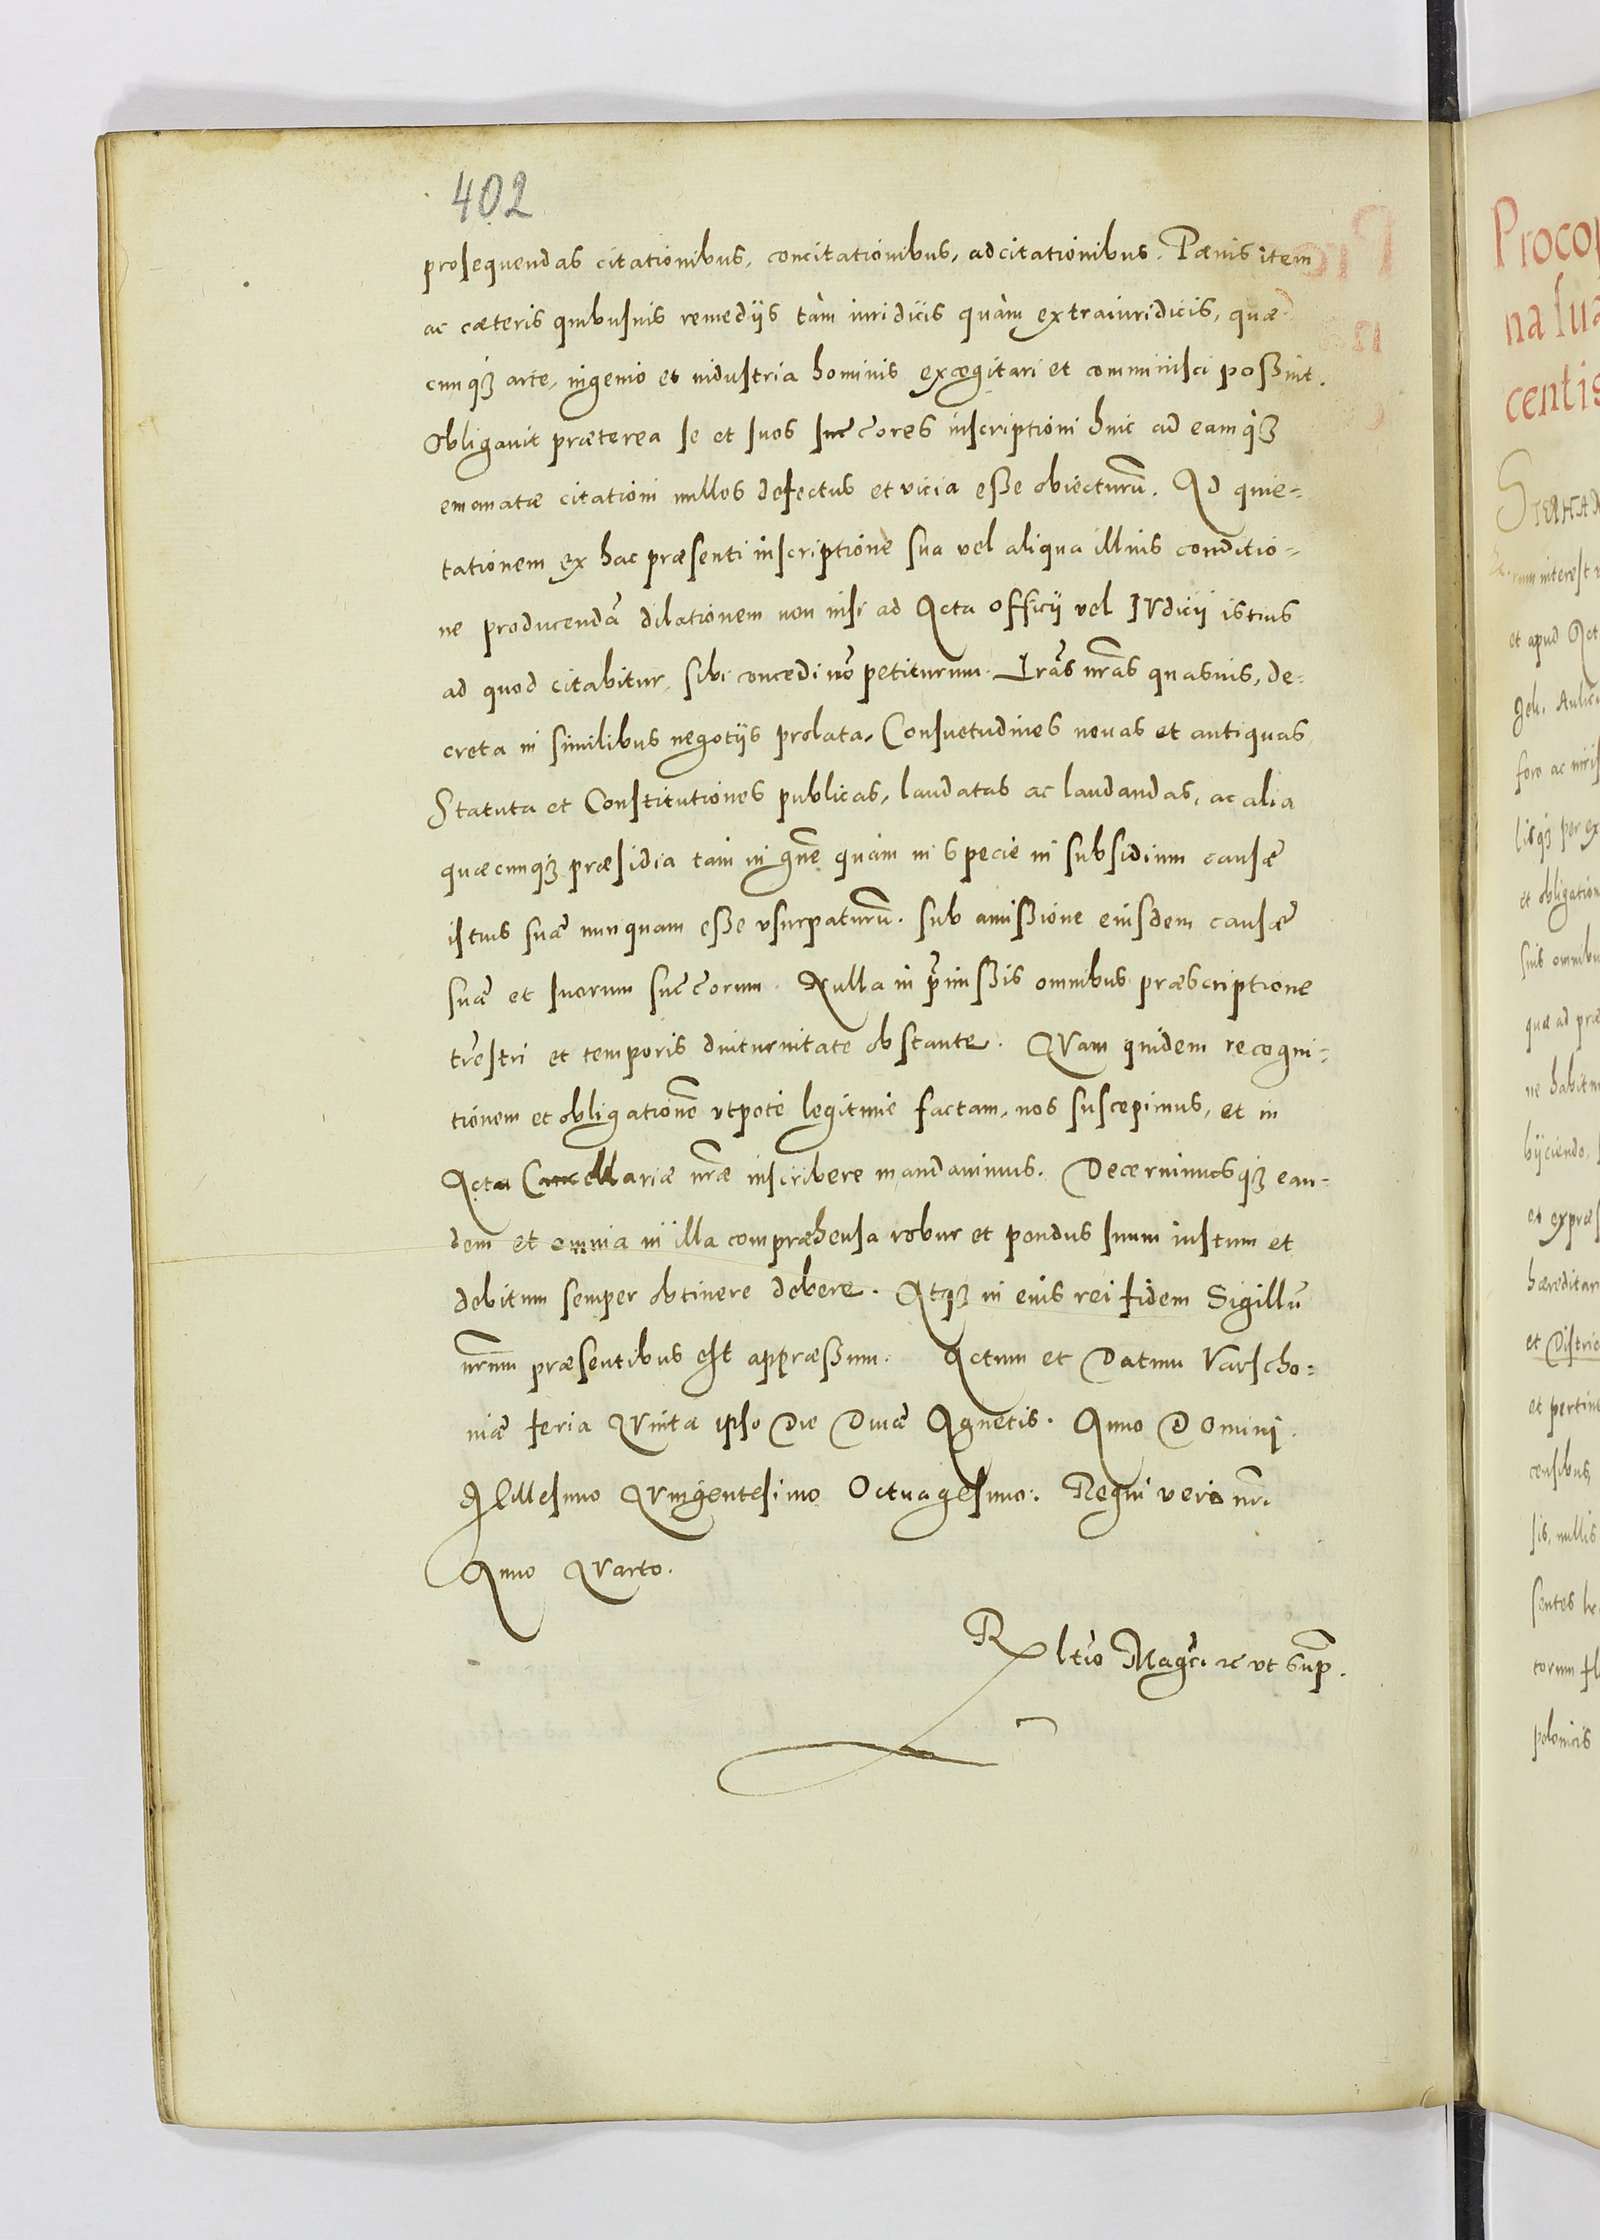 402
prosequendas citationibus, concitationibus, adcitationibus. Pænis item
ac cæteris quibusuis remedijs tàm iuridicis quàm extraiuridicis, quæ
cunqȝ arte, ingenio et industria hominis excogitari et comminisci possint.
Obligauit præterea se et suos succores inscriptioni huic ad eamqȝ
emanatæ citationi nullos defectus et vicia esse obiecturū. Ad quie-
tationem ex hac præsenti inscriptione sua vel aliqua illius conditio-
ne producendā dilationem non nisi ad Acta officij vel IVdicij istius
ad quod citabitur, sibi concedi nō petiturum. Lrās nrās quasuis, de-
creta in similibus negotijs prolata, Consuetudines nouas et antiquas
Statuta et Constitutiones publicas, laudatas ac laudandas, ac alia
quæcunqȝ præsidia tam in gñe quàm in specie in subsidium causæ
istius suæ nunquam esse vsurpaturū. sub amissione eiusdem causæ
suæ et suorum succorum. Nulla in pr̄missis omnibus præscriptione
tr̄estri et temporis diuturnitate obstante. QVam quidem recogni-
tionem et obligationē vtpote legitime factam, nos suscepimus, et in
Acta Cancellariæ nr̄æ inscribere mandauimus. Decernimusqȝ ean-
dem et omnia in illa compræhensa robur et pondus suum iustum et
debitum semper obtinere debere. Atqȝ in eius rei fidem Sigillū
nr̄um præsentibus est appræssum. Actum et Datum Varscho-
uiæ feria QVinta ipso die Diuæ Agnetis. Anno DOmini.
Millesimo QVingentesimo Octuagesimo. Regni vero nr̄i
Anno QVarto.
Rltio Magci rc vt sup.
Procop
na sua
centis
et apud Act
foro ac
lisqȝ per ex
et obligation
suis omnibu
quæ ad præ
ne habitu
bijciendo,
et expræs
hæreditari
et Distric
et pertine
censibus,
sis, nullis
sentes
torum
polonicis